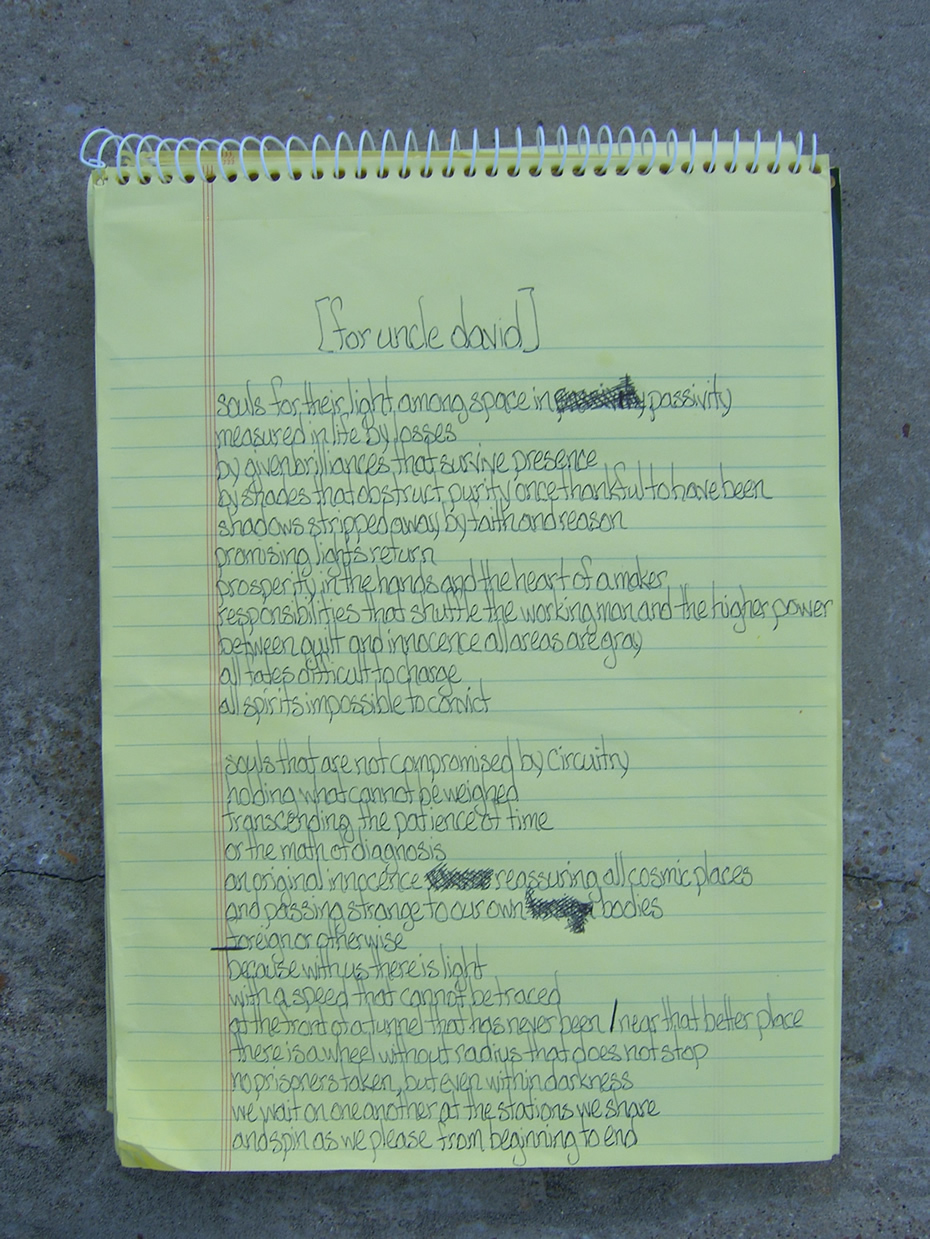 [for uncle david]
souls for their light, among space in passivity
measured in life by losses
by given brilliances that survive presence
by shades that obstruct purity once thankful to have been
shadows stripped away by faith and reason
promising lights return
prosperity in the hands and the heart of a maker
responsibilities that shuttle the working man and the higher power
between guilt and innocence all areas are gray
all fates difficult to charge
all spirits impossible to convict
souls that are not compromised by circuitry
holding what cannot be weighed
transcending the patience of time
or the math of diagnosis
an original innocence reassuring all cosmic places
and passing strange to our own bodies
foreign or otherwise
because with us there is light
with a speed that cannot be traced
at the front of a tunnel that has never been / near that better place
there is a wheel without radius that does not stop
no prisoners taken, but even within darkness
we wait on one another at the stations we share
and spin as we please from beginning to end